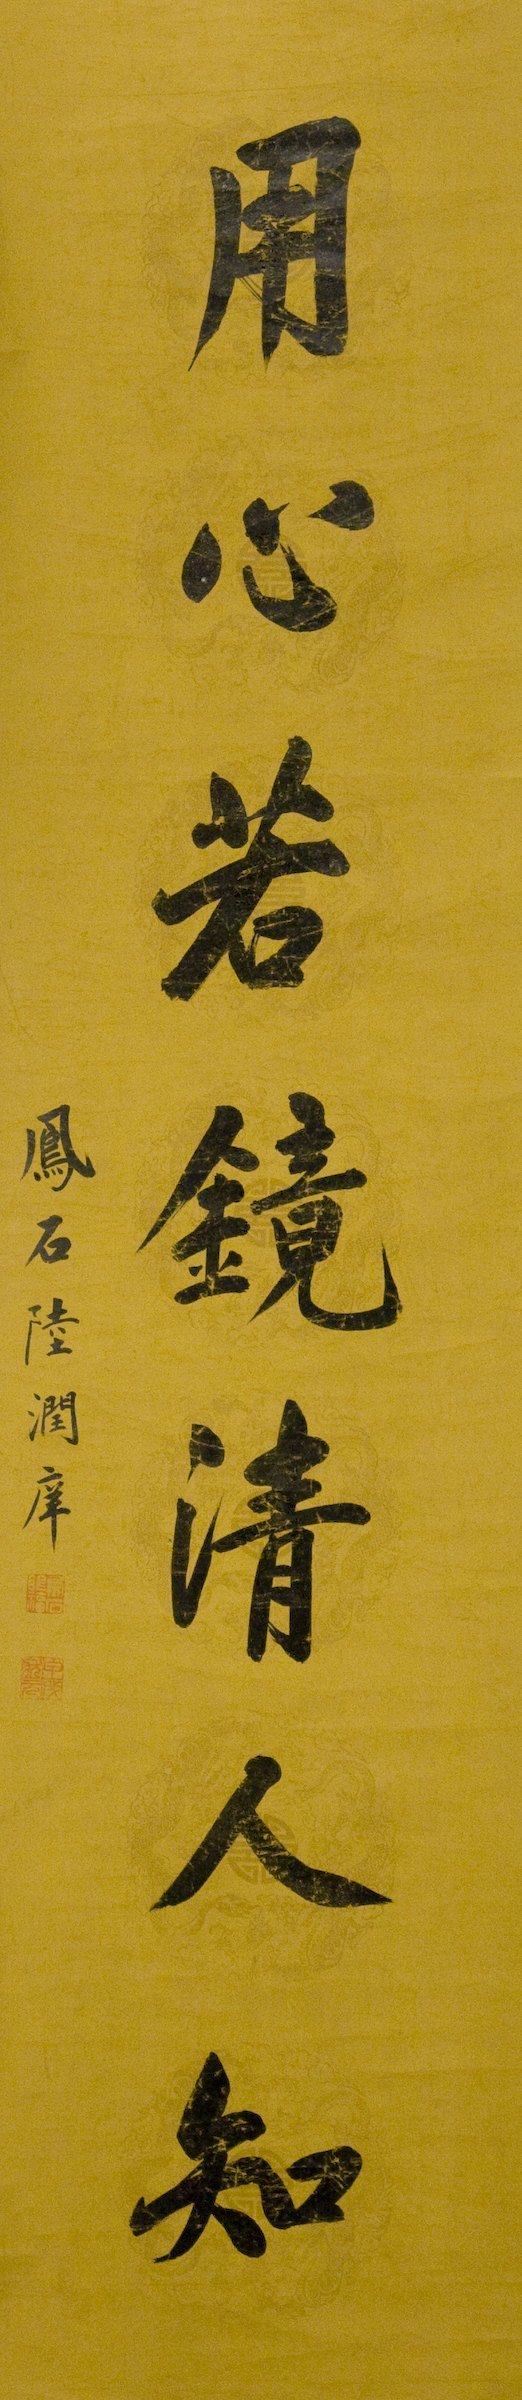 用心若鏡清人知
鳳石陸潤庠